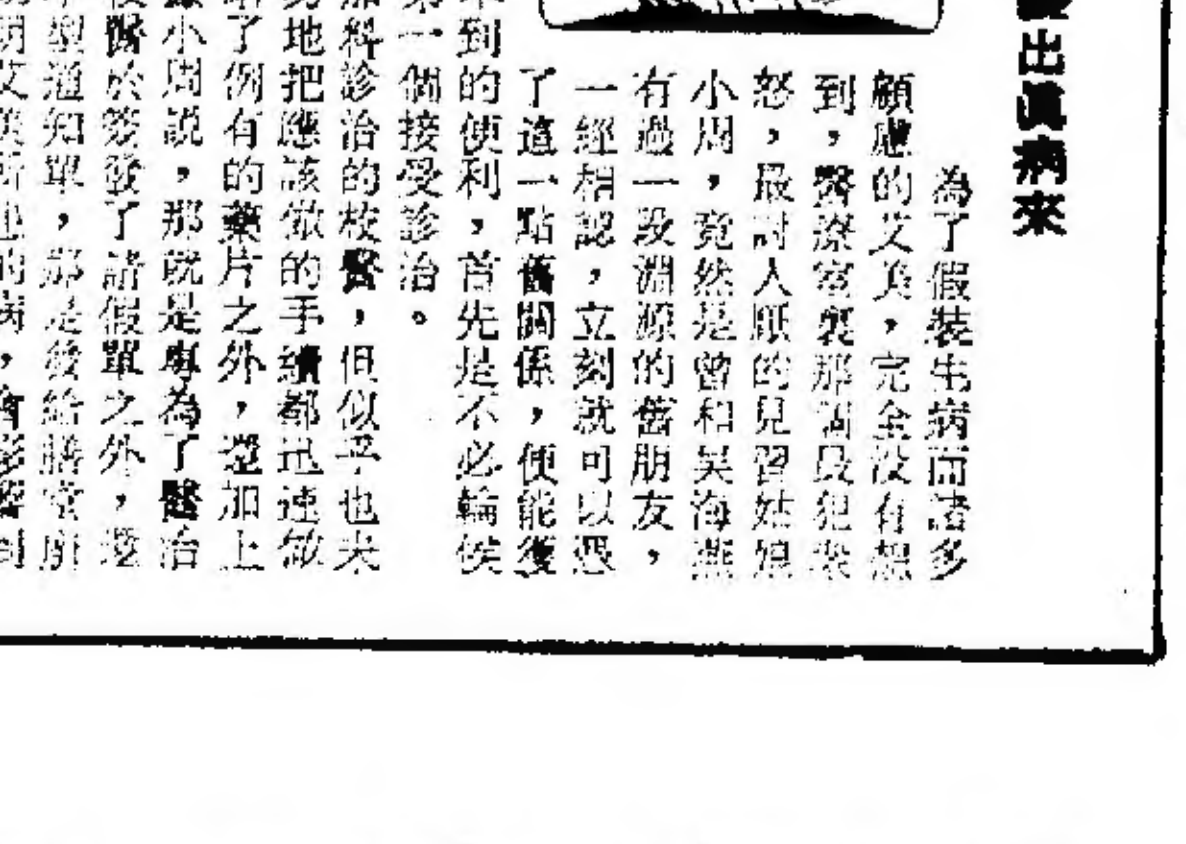 出眞病來
為了假裝生病而諸多
顧慮的艾美，完全没有想
到，醫療室裏那個最犯衆
怒，最討人厭的見習姑娘
小周，竟然是曾和吴海燕
有過一段淵源的舊朋友，
一經相認，立刻就可以憑
了這一點舊關係，便能獲
到的便利，首先是不必輪候
第一個接受診治。
科診治的校醫，但似乎也未
地把應該做的手續都迅速做
了例有的藥片之外，還加上
小周説，那就是專為了醫治
醫於簽發了請假單之外，還
型通知單，那是後給膳堂廚
明艾美所
的病，會